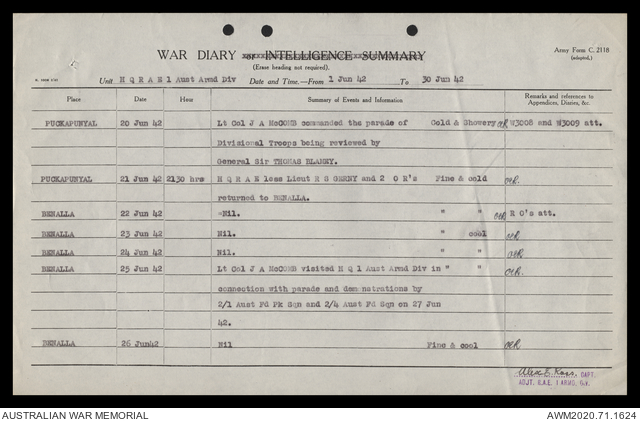 WAR DIARY or INTELLIGENCE SUMMARY
Army Form C. 2118
(adapted.)
(Erase heading not required).
Unit H Q R A E 1 Aust Armd Div Date and Time.—From 1 Jun 42 To 30 Jun 42
Place Date Hour Summary of Events and Information Remarks and references to
Appendices, Diaries, &c.
PUCKAPUNYAL 20 Jun 42 Lt Col J A McCOMB commanded the parade of Cold & Showery W3008 and W3009 att.
Divisional Troops being reviewed by
General Sir THOMAS BLAMEY.
PUCKAPUNYAL 21 Jun 42 2130 hrs H Q R A E less Lieut R G GERNY and 2 O R's Fine & cold
returned to BENALLA.
BENALLA 22 Jun 42 Nil. " " R O's att.
BENALLA 23 Jun 42 Nil. " cool
BENALLA 24 Jun 42 Nil. " "
BENALLA 25 Jun 42 Lt Col J A McCOMB visited H Q 1 Aust Armd Div in " "
connection with parade and demonstrations by
2/1 Aust Fd Pk Sqn and 2/4 Aust Fd Sqn on 27 Jun
42.
BENALLA 26 Jun42 Nil Fine & cool
CAPT.
ADJT. R.A.E. 1 ARMD. DIV.
AUSTRALIAN WAR MEMORIAL AWM2020.71.1624